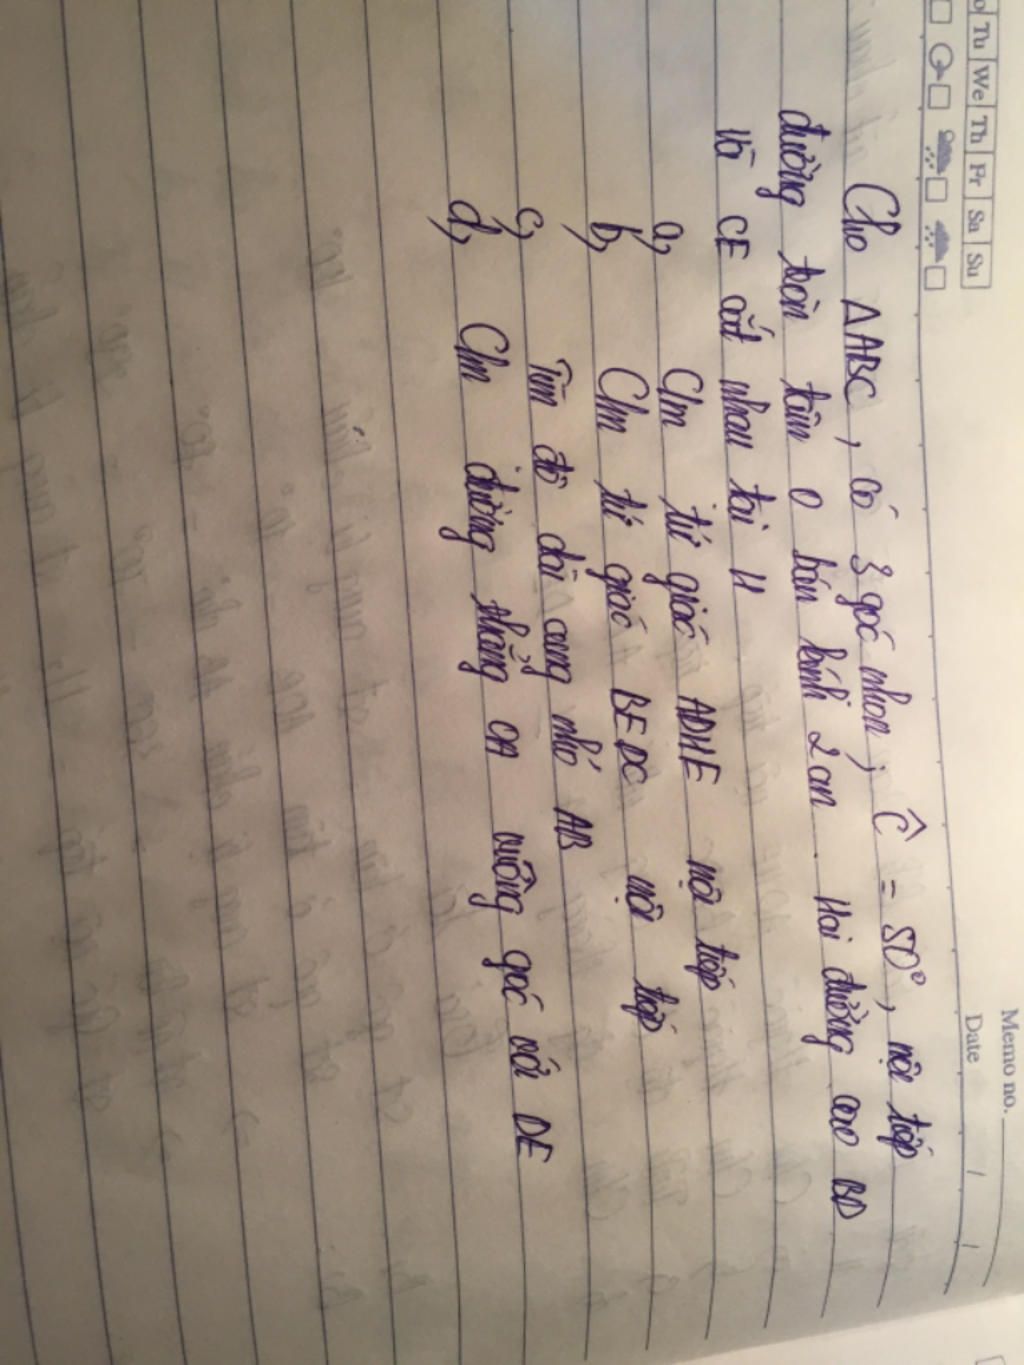 Memo no.
Date / /
o Tu We Th Fr Sa Su
Cho ΔABC, có 3 góc nhọn; Ĉ = 50°, nội tiếp
đường tròn tâm O bán kính 2 cm. Hai đường cao BD
và CE cắt nhau tại H
a, Cm tứ giác ADHE nội tiếp
b, Cm tứ giác BEDC nội tiếp
c, Tìm độ dài cung nhỏ AB
d, Cm đường thẳng OA vuông góc với DE